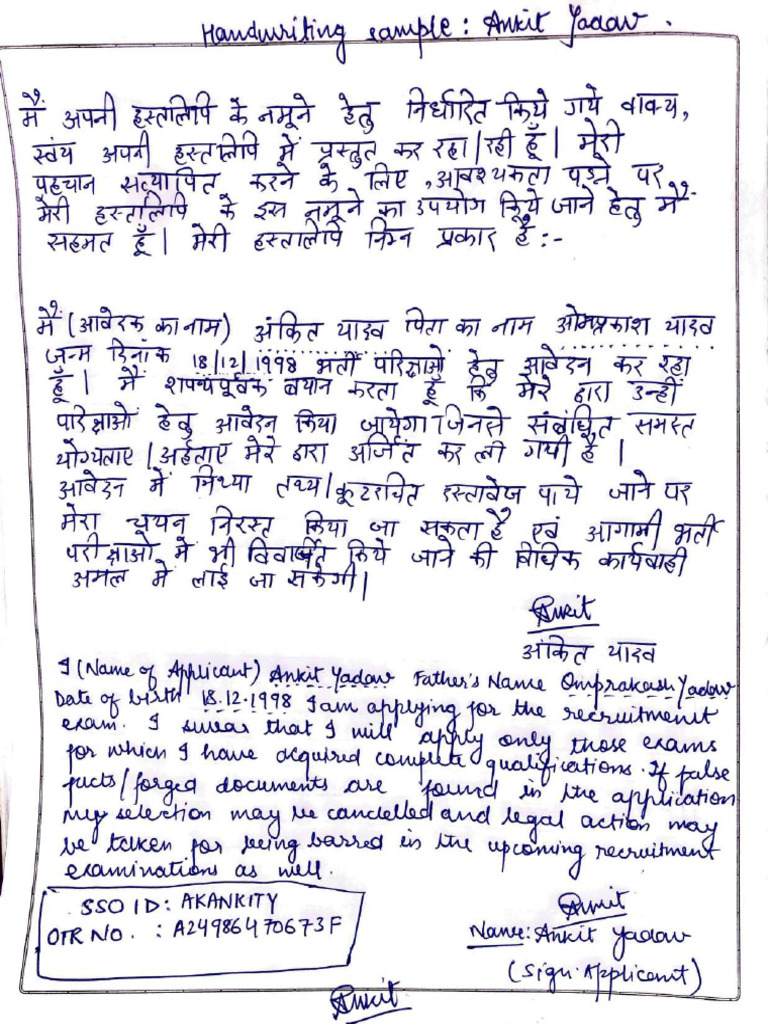 Handwriting sample: Ankit Yadav.
मैं अपनी हस्तालिपि के नमूने हेतु निर्धारित किये गये वाक्य,
स्वंय अपनी हस्तलिपि में प्रस्तुत कर रहा/रही हूँ। मेरी
पहचान सत्यापित करने के लिए, आवश्यकता पडने पर
मेरी हस्तालिपि के इस नमूने का उपयोग किये जाने हेतु मैं
सहमत हूँ। मेरी हस्तालिपि निम्न प्रकार है:-
मैं (आवेदक का नाम) अंकित यादव पिता का नाम ओमप्रकाश यादव
जन्म दिनांक 18/12/1998 भर्ती परिक्षाओ हेतु आवेदन कर रहा
हूँ। मैं शपथपूर्वक बयान करता हूँ कि मेरे द्वारा उन्हीं
परिक्षाओं हेतु आवेदन किया जायेगा जिनसे संबंधित समस्त
योग्यताए/अर्हताए मेरे द्वारा अर्जित कर ली गयी है।
आवेदन में मिथ्या तथ्य/कूटरचित दस्तावेज पाये जाने पर
मेरा चयन निरस्त किया जा सकता है एवं आगामी भर्ती
परीक्षाओ मे भी विवर्जित किये जाने की विधिक कार्यवाही
अमल मे लाई जा सकेगी।
Ankit
अंकित यादव
I (Name of Applicant) Ankit Yadav Father's Name Omprakash Yadav
Date of birth 18.12.1998 I am applying for the recruitment
exam. I swear that I will apply only those exams
for which I have acquired complete qualifications. If false
facts/forged documents are found in the application
my selection may be cancelled and legal action may
be taken for being barred in the upcoming recruitment
examinations as well.
SSO ID: AKANKITY
OTR NO. : A24986470673F
Ankit
Name: Ankit Yadav
(Sign. Applicant)
Ankit